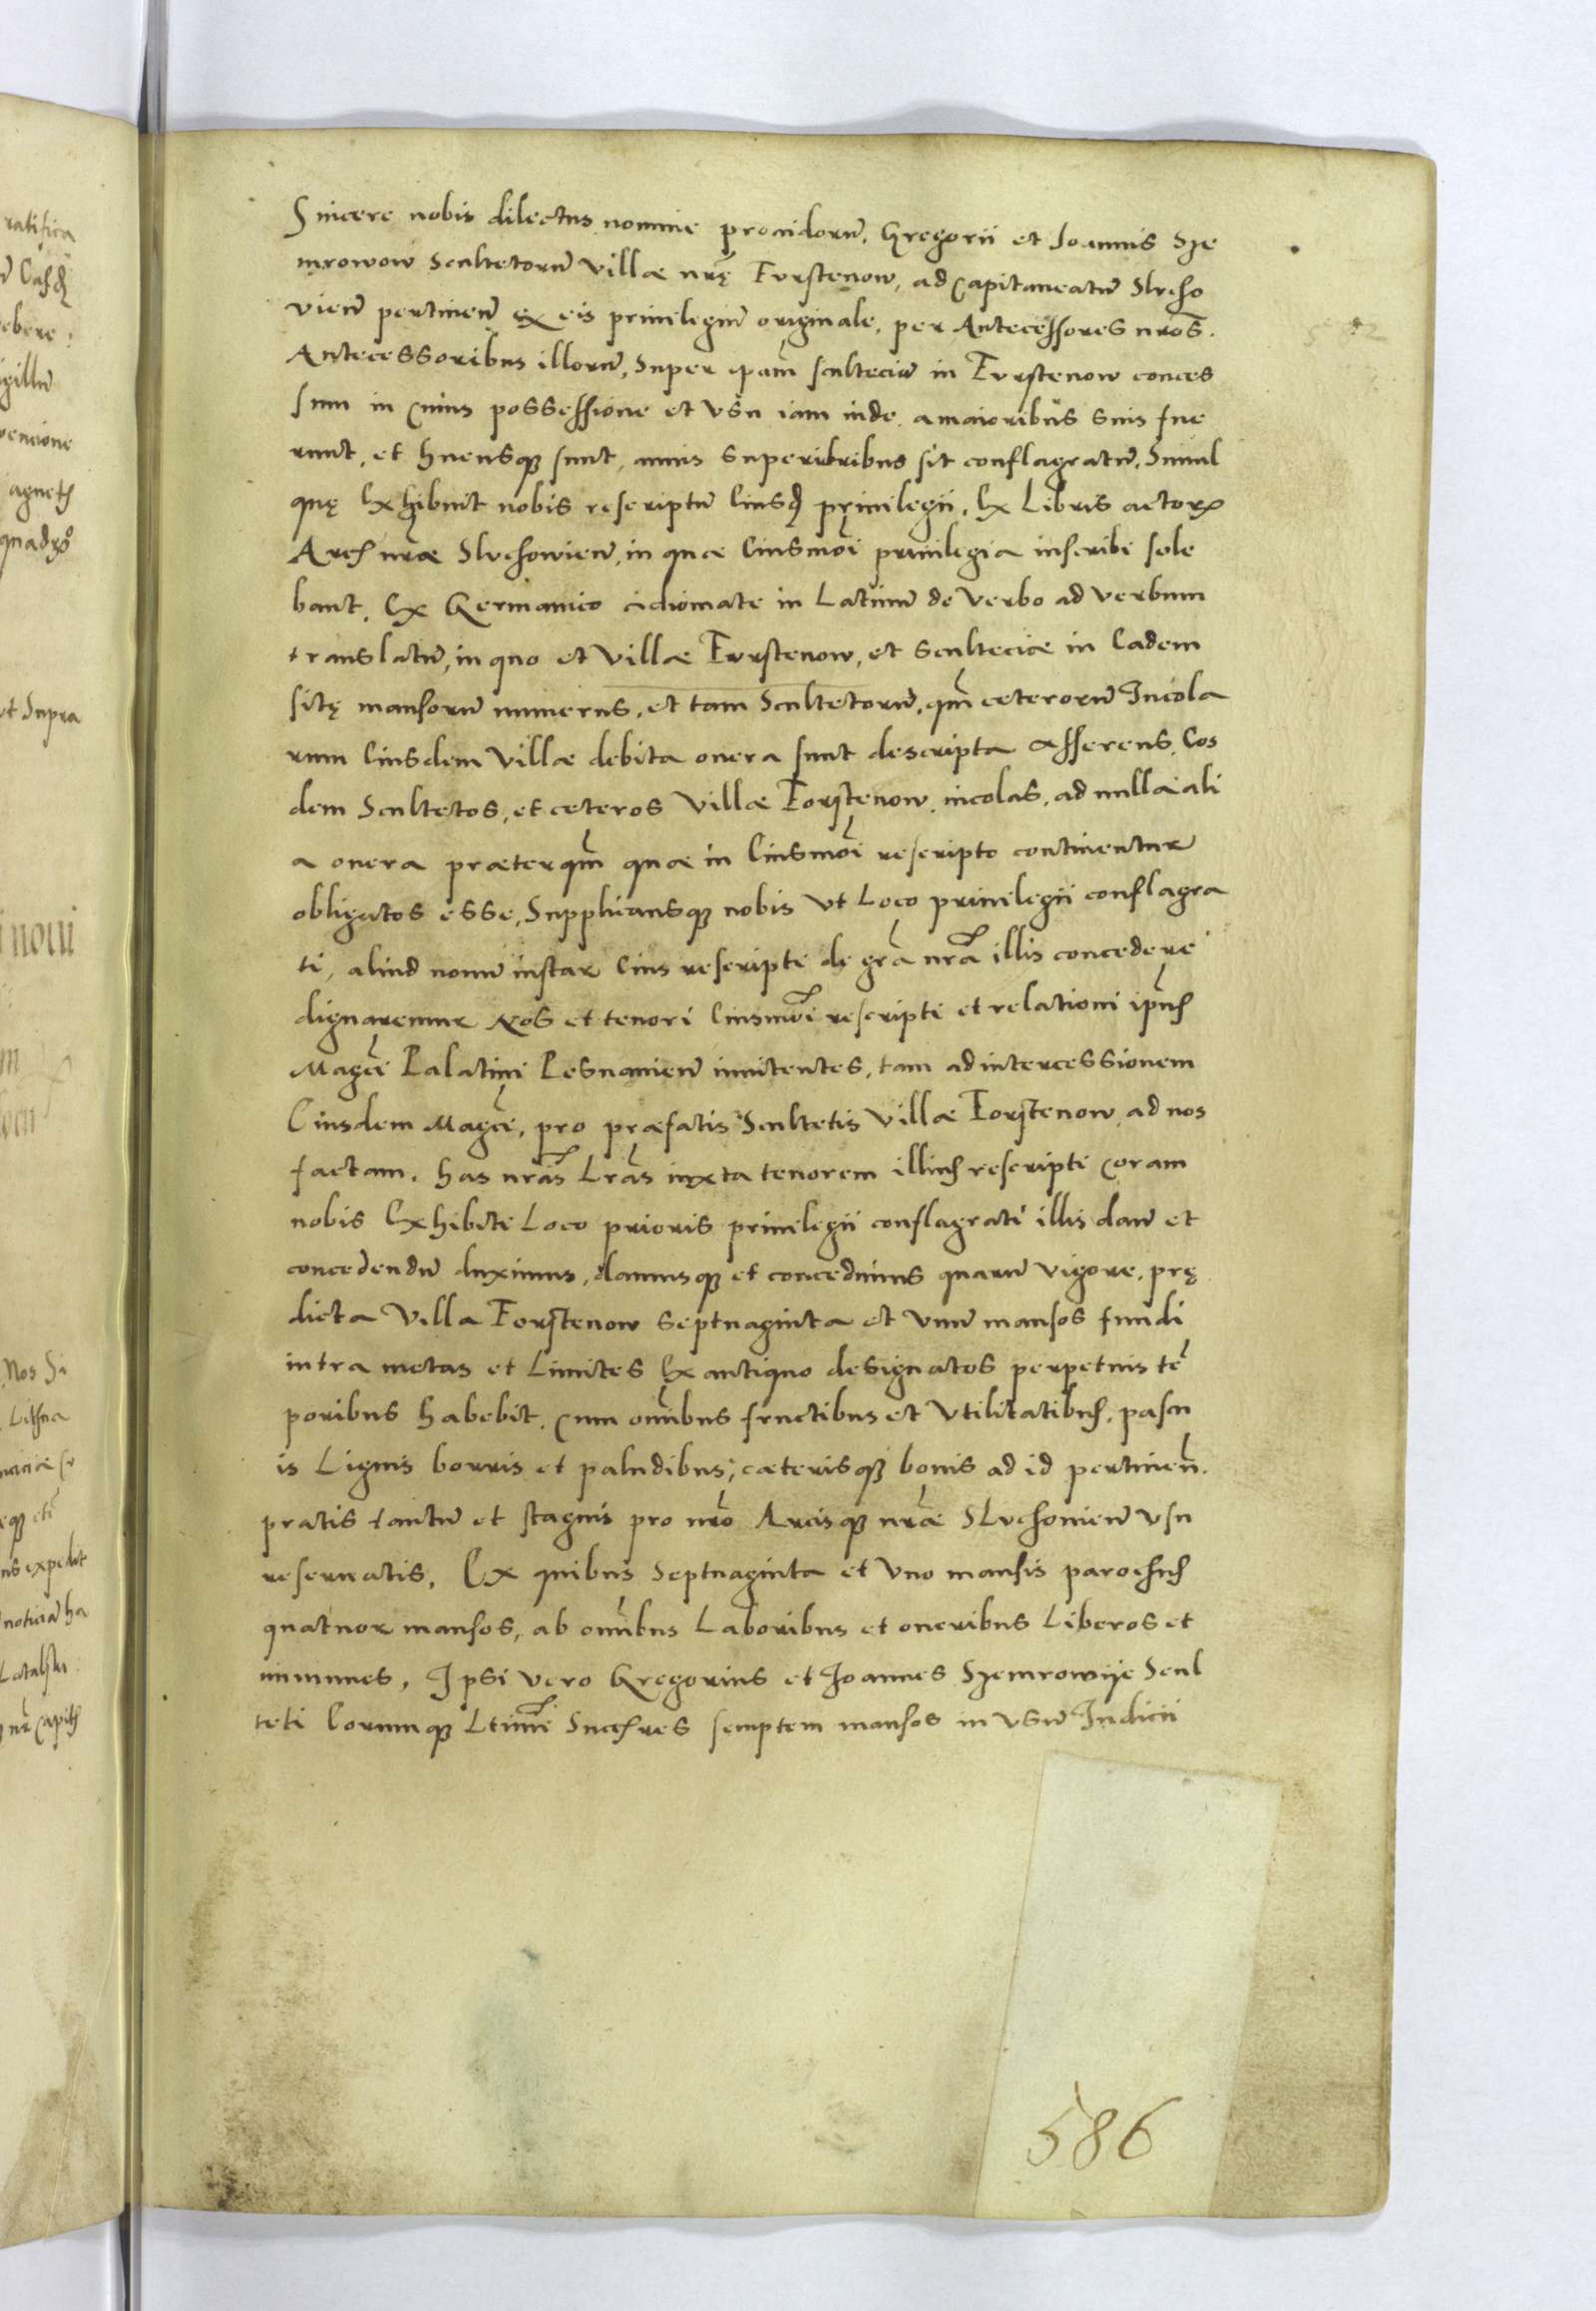 Sincere nobis dilectus nomine prouidorū, Gregorii et Joannis Sze
mrowow Scultetorū villæ nrę Furstenow, ad capitaneatū Slucho
vień pertineń ex eis priuilegiū originale, per Antecessores nros̄.
Antecessoribus illorū, super ipam̄ sculteciā in Furstenow conces
sum in cuius possessione et vsu iam inde a maioribus suis fue
runt, et hucusq̨ sunt, annis superioribus sit conflagratū, Simul
quę exhibuit nobis rescriptū eiusd̨ priuilegii, ex Libris actorꝝ
Arcis nrǣ Sluchowień, in quæ eiusmōi priuilegia inscribi sole
bant, ex Germanico idiomate in Latinū de verbo ad verbum
translatū, in quo et villæ Furstenow, et sculteciæ in eadem
sitę mansorū numerus, et tam Scultetorū, qm̄ ceterorū Incola
rum eiusdem villæ debita onera sunt descripta asserens, eos
dem Scultetos, et ceteros villæ Forstenow incolas, ad nulla ali
a onera præterqm̄ quæ in eiusmōi rescripto continentur
obligatos esse, Supplicansq̨ nobis vt Loco priuilegii conflagra
ti, aliud nouū instar eius rescripti de grā nrā illis concedere
dignaremur Nos et tenori eiusmōi rescripti et relationi ipius
Magci Palatini Posnanień innitentes, tam ad intercessionem
Eiusdem Magci, pro præfatis Scultetis villæ Forstenow ad nos
factam, has nrās Lrās iuxta tenorem illius rescripti coram
nobis exhibiti Loco prioris priuilegii conflagrati illis dań et
concedendū duximus, damusq̨ et concedimus quarū vigore, prę
dicta villa Forstenow septuaginta et vnū mansos fundi
intra metas et Limites ex antiquo designatos perpetuis tē
poribus habebit, cum omibus fructibus et vtilitatibus, pascu
is Lignis borris et paludibus, cæterisq̨ bonis ad id pertineń.
pratis tantū et stagnis pro nrō Arcisq̨ nrǣ Sluchouień vsu
reseruatis, Ex quibus septuaginta et vno mansis parochus
quatuor mansos, ab omibus Laboribus et oneribus Liberos et
immunes, Ipsi vero Gregorius et Joannes Szemrowije Scul
teti eorumq̨ Ltimi Succres semptem mansos in vsū Judicii
586